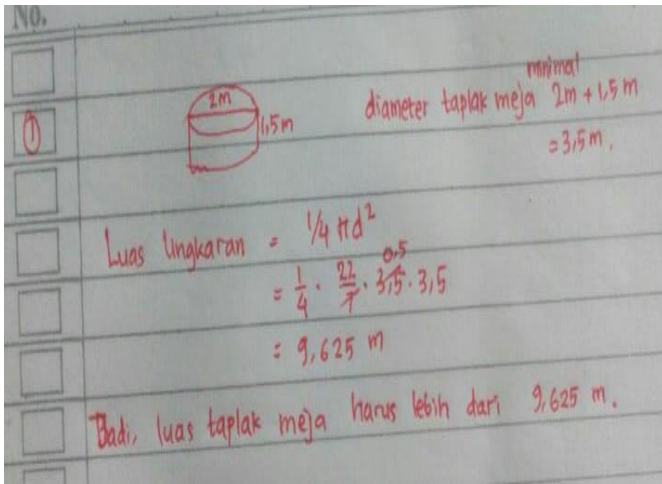 No.
①
2m
1,5m
diameter taplak meja minimal 2m + 1,5 m
= 3,5 m.
Luas lingkaran = 1/4 πd²
= 1/4 . 22/7 . 3,5 . 3,5
0.5
= 9,625 m
Jadi, luas taplak meja harus lebih dari 9,625 m.